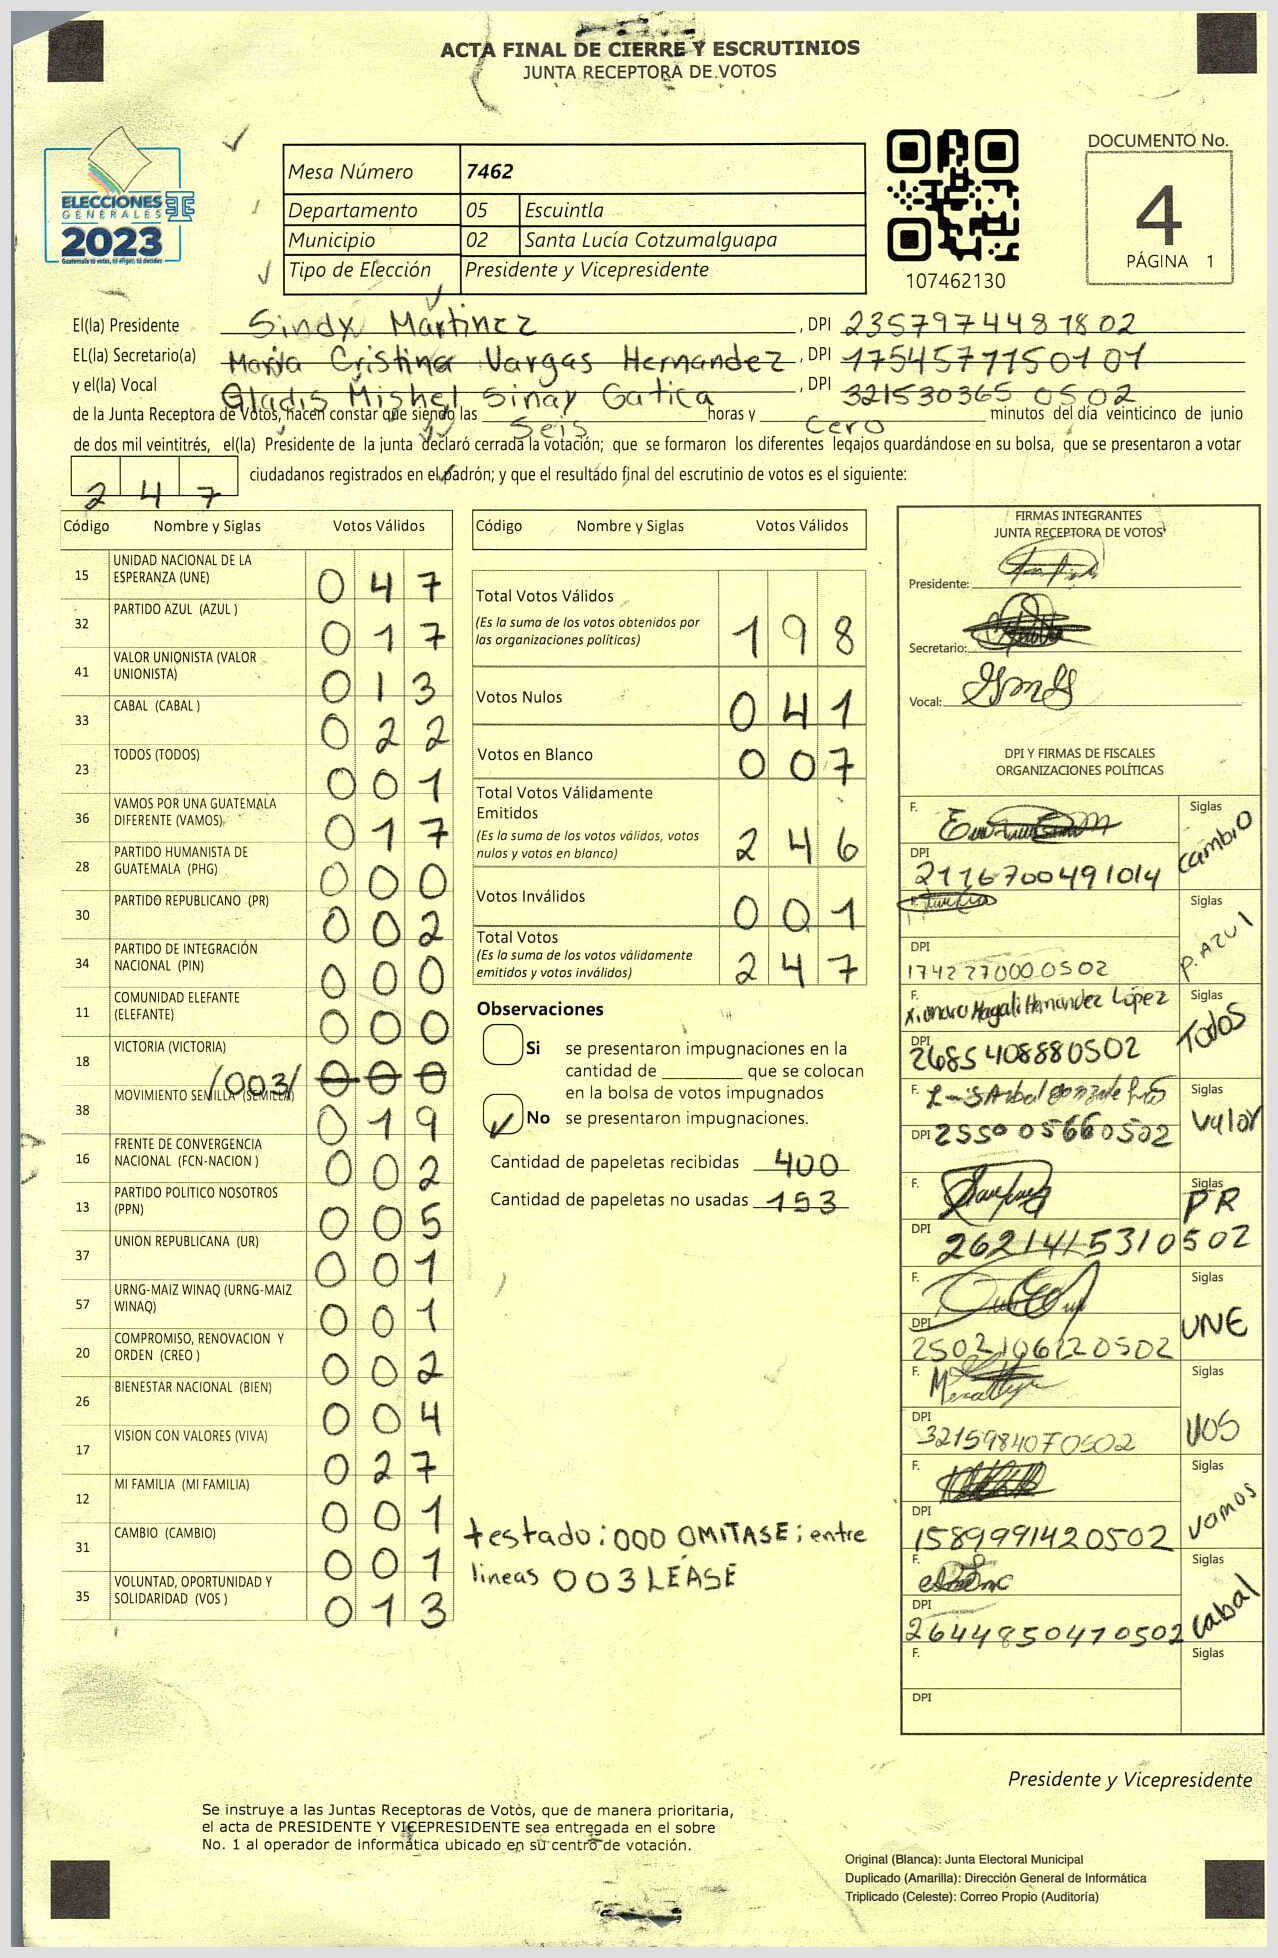 ACTA FINAL DE CIERRE Y ESCRUTINIOS
JUNTA RECEPTORA DE VOTOS
ELECCIONES
GENERALES
2023
Guatemala tú votas, tú eliges, tú decides
Mesa Número 7462
Departamento 05 Escuintla
Municipio 02 Santa Lucía Cotzumalguapa
Tipo de Elección Presidente y Vicepresidente
107462130
DOCUMENTO No.
4
PÁGINA 1
El(la) Presidente Sindy Martinez , DPI 2357974481802
EL(la) Secretario(a) Maria Cristina Vargas Hernandez , DPI 1754577150101
y el(la) Vocal Gladis Mishel Sinay Gatica , DPI 321530365 0502
de la Junta Receptora de Votos, hacen constar que siendo las Seis horas y Cero minutos del día veinticinco de junio
de dos mil veintitrés, el(la) Presidente de la junta declaró cerrada la votación; que se formaron los diferentes legajos guardándose en su bolsa, que se presentaron a votar
247 ciudadanos registrados en el padrón; y que el resultado final del escrutinio de votos es el siguiente:
Código Nombre y Siglas Votos Válidos
15 UNIDAD NACIONAL DE LA ESPERANZA (UNE) 047
32 PARTIDO AZUL (AZUL ) 017
41 VALOR UNIONISTA (VALOR UNIONISTA) 013
33 CABAL (CABAL ) 022
23 TODOS (TODOS) 001
36 VAMOS POR UNA GUATEMALA DIFERENTE (VAMOS) 017
28 PARTIDO HUMANISTA DE GUATEMALA (PHG) 000
30 PARTIDO REPUBLICANO (PR) 002
34 PARTIDO DE INTEGRACIÓN NACIONAL (PIN) 000
11 COMUNIDAD ELEFANTE (ELEFANTE) 000
18 VICTORIA (VICTORIA) /003/ 000
38 MOVIMIENTO SEMILLA (SEMILLA) 019
16 FRENTE DE CONVERGENCIA NACIONAL (FCN-NACION ) 002
13 PARTIDO POLITICO NOSOTROS (PPN) 005
37 UNION REPUBLICANA (UR) 001
57 URNG-MAIZ WINAQ (URNG-MAIZ WINAQ) 001
20 COMPROMISO, RENOVACION Y ORDEN (CREO ) 002
26 BIENESTAR NACIONAL (BIEN) 004
17 VISION CON VALORES (VIVA) 027
12 MI FAMILIA (MI FAMILIA) 001
31 CAMBIO (CAMBIO) 001
35 VOLUNTAD, OPORTUNIDAD Y SOLIDARIDAD (VOS ) 013
Código Nombre y Siglas Votos Válidos
Total Votos Válidos 198
(Es la suma de los votos obtenidos por
las organizaciones políticas)
Votos Nulos 041
Votos en Blanco 007
Total Votos Válidamente
Emitidos
(Es la suma de los votos válidos, votos
nulos y votos en blanco) 246
Votos Inválidos 001
Total Votos
(Es la suma de los votos válidamente
emitidos y votos inválidos) 247
Observaciones
Si se presentaron impugnaciones en la
cantidad de ________ que se colocan
en la bolsa de votos impugnados
No se presentaron impugnaciones.
Cantidad de papeletas recibidas 400
Cantidad de papeletas no usadas 153
testado: 000 OMITASE; entre
lineas 003 LEASE
FIRMAS INTEGRANTES
JUNTA RECEPTORA DE VOTOS
Presidente:
Secretario:
Vocal:
DPI Y FIRMAS DE FISCALES
ORGANIZACIONES POLÍTICAS
F. Siglas cambio
DPI 2116700491014
F. Siglas P. AZUL
DPI 1742270000502
F. Magali Hernandez López Siglas Todos
DPI 2685408880502
F. Siglas Valor
DPI 2550056600502
F. Siglas PR
DPI 2621415310502
F. Siglas UNE
DPI 2502106220502
F. Siglas VOS
DPI 3215984070502
F. Siglas vamos
DPI 1589991420502
F. Siglas cabal
DPI 2644850470502
F. Siglas
DPI
Presidente y Vicepresidente
Se instruye a las Juntas Receptoras de Votos, que de manera prioritaria,
el acta de PRESIDENTE Y VICEPRESIDENTE sea entregada en el sobre
No. 1 al operador de informática ubicado en su centro de votación.
Original (Blanca): Junta Electoral Municipal
Duplicado (Amarilla): Dirección General de Informática
Triplicado (Celeste): Correo Propio (Auditoría)